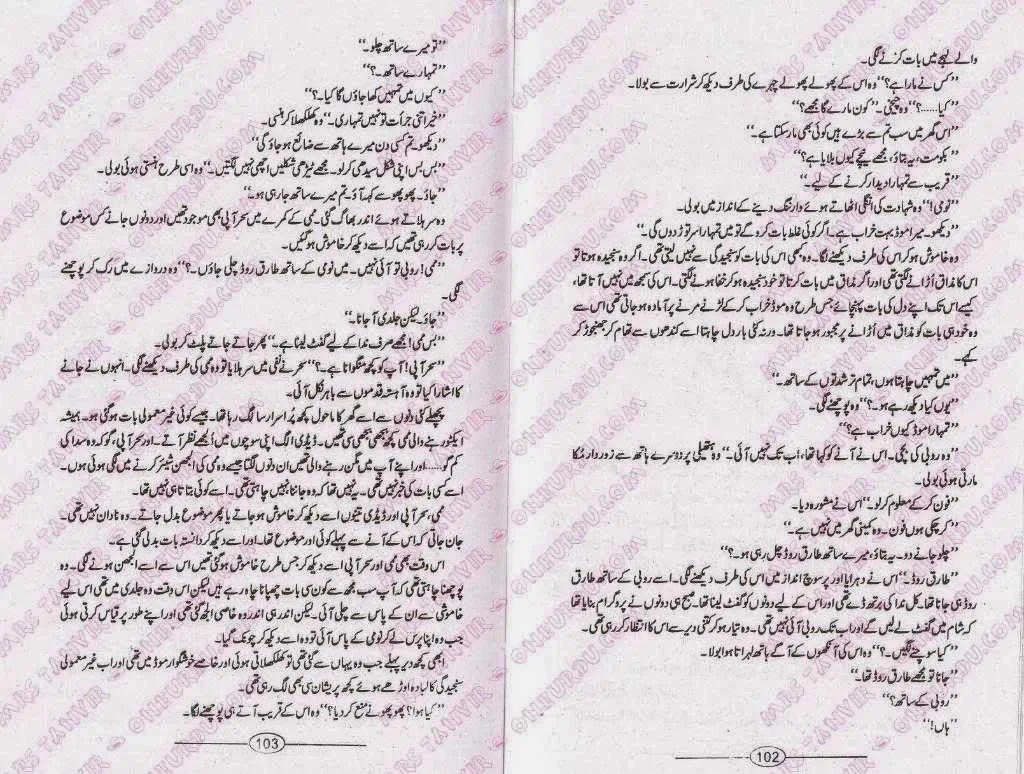 والے لہجے میں بات کرنے لگی۔
’’کس نے مارا ہے؟‘‘ وہ اس کے پھولے پھولے چہرے کی طرف دیکھ کر شرارت سے بولا۔
’’کیا......؟‘‘ وہ چیخی۔ ’’کون مارے گا مجھے؟‘‘
’’اس گھر میں سب تم سے بڑے ہیں کوئی بھی مار سکتا ہے۔‘‘
’’بکومت، یہ بتاؤ، مجھے نیچے کیوں بلایا ہے؟‘‘
’’قریب سے تمہارا دیدار کرنے کے لیے۔‘‘
’’نومی!‘‘ وہ شہادت کی انگلی اٹھاتے ہوئے وارننگ دینے کے انداز میں بولی۔
’’دیکھو۔ میرا موڈ بہت خراب ہے۔ اگر کوئی غلط بات کرو گے تو میں تمہارا سر توڑ دوں گی۔‘‘
وہ خاموش ہو کر اس کی طرف دیکھنے لگا۔ وہ کبھی اس کی بات کو سنجیدگی سے نہیں لیتی تھی۔ اگر وہ سنجیدہ ہوتا تو
اس کا مذاق اڑانے لگتی تھی اور اگر مذاق میں بات کرتا تو خود سنجیدہ ہو کر خفا ہونے لگتی۔ اس کی سمجھ میں نہیں آتا تھا،
کیسے اس تک اپنے دل کی بات پہنچائے جس طرح وہ موڈ خراب کر کے لڑنے مرنے پر آمادہ ہو جاتی تھی اس سے
وہ خود ہی بات کو مذاق میں اڑانے پر مجبور ہو جاتا تھا۔ ورنہ کئی بار دل چاہتا اسے کندھوں سے تھام کر جھنجوڑ کر
کہے۔
’’میں تمہیں چاہتا ہوں، تمام تر شدتوں کے ساتھ۔‘‘
’’یوں کیا دیکھ رہے ہو۔؟‘‘ وہ پوچھنے لگی۔
’’تمہارا موڈ کیوں خراب ہے؟‘‘
’’وہ روبی کی بچی۔ اس نے آنے کو کہا تھا، اب تک نہیں آئی۔‘‘ وہ ہتھیلی پر دوسرے ہاتھ سے زوردار مُکا
مارتی ہوئی بولی۔
’’فون کر کے معلوم کر لو۔‘‘ اس نے مشورہ دیا۔
’’کر چکی ہوں فون۔ وہ کمینی گھر میں نہیں ہے۔‘‘
’’چلو جانے دو۔ یہ بتاؤ، میرے ساتھ طارق روڈ چل رہی ہو۔؟‘‘
’’طارق روڈ۔‘‘ اس نے دہرایا اور پرسوچ انداز میں اس کی طرف دیکھنے لگی۔ اسے روبی کے ساتھ طارق
روڈ ہی جانا تھا۔ کل ندا کی برتھ ڈے تھی اور اس کے لیے دونوں کو گفٹ لینا تھا۔ صبح ہی دونوں نے پروگرام بنایا تھا
کہ شام میں گفٹ لے لیں گے اور اب تک روبی آئی نہیں تھی۔ وہ تیار ہو کر کتنی دیر سے اس کا انتظار کر رہی تھی۔
’’کیا سوچنے لگیں۔؟‘‘ وہ اس کی آنکھوں کے آگے ہاتھ لہراتا ہوا بولا۔
’’جانا تو مجھے طارق روڈ تھا۔‘‘
’’روبی کے ساتھ؟‘‘
’’ہاں!‘‘
102
’’تو میرے ساتھ چلو۔‘‘
’’تمہارے ساتھ۔؟‘‘
’’کیوں میں تمہیں کھا جاؤں گا کیا۔؟‘‘
’’خیر اتنی جرأت تو نہیں تمہاری۔‘‘ وہ کھلکھلا کر ہنسی۔
’’دیکھو۔ تم کسی دن میرے ہاتھ سے ضائع ہو جاؤ گی‘‘
’’بس بس اپنی شکل سیدھی کر لو۔ مجھے ٹیڑھی شکلیں اچھی نہیں لگتیں۔‘‘ وہ اسی طرح ہنستی ہوئی بولی۔
’’جاؤ۔ پھوپھو سے کہہ آؤ۔ تم میرے ساتھ جا رہی ہو۔‘‘
وہ سر ہلاتے ہوئے اندر بھاگ گئی۔ ممی کے کمرے میں سحر آپی بھی موجود تھیں اور دونوں جانے کس موضوع
پر بات کر رہی تھیں کہ اسے دیکھ کر خاموش ہو گئیں۔
’’ممی! روبی تو آئی نہیں۔ میں نومی کے ساتھ طارق روڈ چلی جاؤں۔؟‘‘ وہ دروازے میں رک کر پوچھنے
لگی۔
’’جاؤ۔ لیکن جلدی آ جانا۔‘‘
’’بس ممی! مجھے صرف ندا کے لیے گفٹ لینا ہے۔‘‘ پھر جاتے جاتے پلٹ کر بولی۔
’’سحر آپی! آپ کو کچھ منگوانا ہے؟‘‘ سحر نے نفی میں سر ہلایا تو وہ ممی کی طرف دیکھنے لگی۔ انہوں نے جانے
کا اشارا کیا تو وہ آہستہ قدموں سے باہر نکل آئی۔
پچھلے کئی دنوں سے اسے گھر کا ماحول کچھ پُراسرار سا لگ رہا تھا۔ جیسے کوئی غیر معمولی بات ہو گئی ہو۔ ہمیشہ
ایکٹو رہنے والی ممی کچھ بجھی بجھی سی تھیں۔ ڈیڈی الگ اپنی سوچوں میں الجھے نظر آتے۔ اور سحر آپی، گو کہ وہ سدا کی
کم گو...... اور اپنے آپ میں مگن رہنے والی تھیں ان دنوں لگتا جیسے وہ ممی کی الجھن شیئر کرنے میں لگی ہوئی ہوں۔
اسے کسی بات کی خبر نہیں تھی۔ یہ نہیں تھا کہ وہ جاننا نہیں چاہتی تھی۔ اسے کوئی بتاتا ہی نہیں تھا۔
ممی، سحر آپی اور ڈیڈی تینوں اسے دیکھ کر خاموش ہو جاتے یا پھر موضوع بدل جاتے۔ وہ نادان نہیں تھی۔
جان جاتی کہ اس کے آنے سے پہلے کوئی اور موضوع تھا۔ اور اسے دیکھ کر دانستہ بات بدلی گئی ہے۔
اس وقت بھی ممی اور سحر آپی اسے دیکھ کر جس طرح خاموش ہو گئی تھیں اس سے اسے الجھن ہونے لگی۔ وہ
پوچھنا چاہتی تھی کہ آپ سب مجھ سے کون سی بات چھپانا چاہ رہے ہیں لیکن اس وقت وہ جلدی میں تھی اس لیے
خاموشی سے ان کے پاس سے چلی آئی۔ لیکن اندر ہی اندر وہ خاصی الجھ گئی تھی اور اپنے طور پر قیاس کرتی ہوئی
جب وہ اپنا پرس لے کر نومی کے پاس آئی تو وہ اسے دیکھ کر چونک گیا۔
ابھی کچھ دیر پہلے جب وہ یہاں سے گئی تھی تو کھلکھلاتی ہوئی اور خاصے خوشگوار موڈ میں تھی اور اب غیر معمولی
سنجیدگی کا لبادہ اوڑھے ہوئے کچھ پریشان سی بھی لگ رہی تھی۔
’’کیا ہوا؟ پھوپھو نے منع کر دیا؟‘‘ وہ اس کے قریب آتے ہی پوچھنے لگا۔
103
MRS TANVIR
ONEURDU.COM